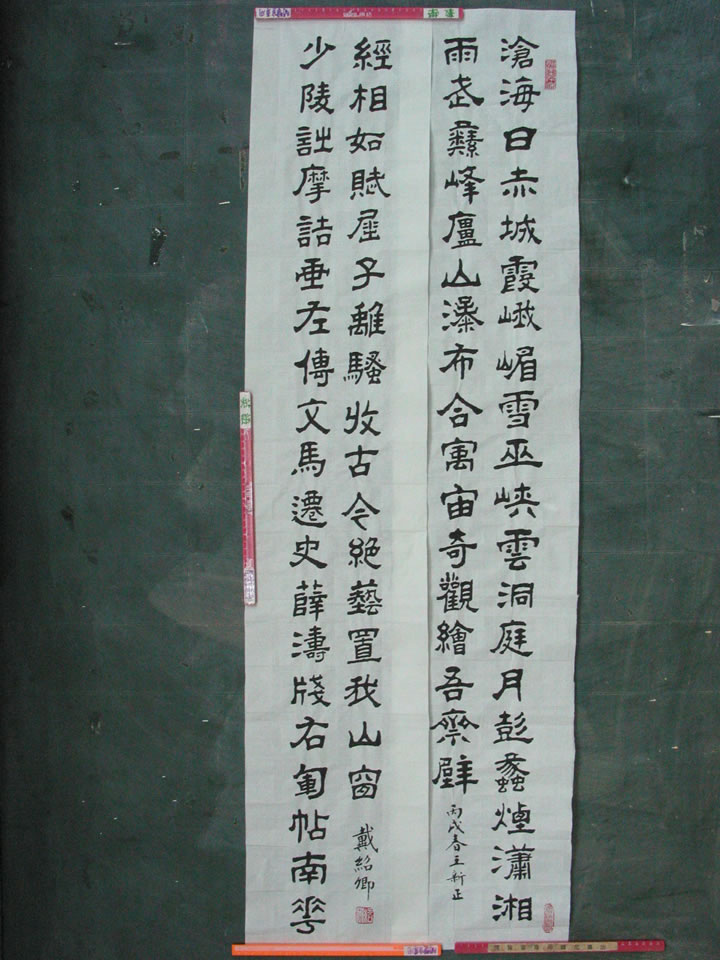 滄海日赤城霞峨嵋雪巫峽雲洞庭月彭蠡煙瀟湘
雨武彝峰廬山瀑布合寓宙奇觀繪吾齋壁
丙戌春王新正
少陵詩摩詰畫左傳文馬遷史薛濤牋右軍帖南華
經相如賦屈子離騷收古今絕藝置我山窗
戴紹卿